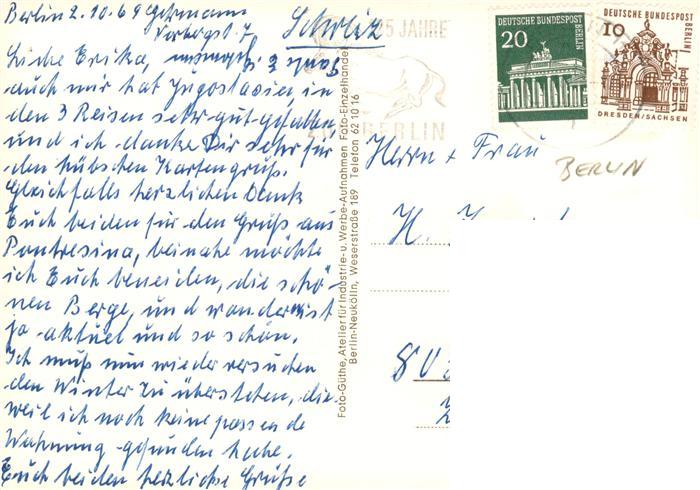 Berlin 2.10.69 Gehrmann
Vorbergstr. 7
Schweiz
Liebe Erika,
auch mir hat Jugoslavien in
den 3 Reisen sehr gut gefallen
und ich danke Dir sehr für
den hübschen Kartengruß.
Gleichfalls herzlichen Dank
Euch beiden für den Gruß aus
Pontresina, beinahe möchte
ich Euch beneiden, die schö-
nen Berge, und wandern ist
ja aktuel und so schön.
Ich muß nun wieder versuchen
den Winter zu überstehen, die-
weil ich noch keine passende
Wohnung gefunden habe.
Euch beiden herzliche Grüße
Foto-Güthe, Atelier für Industrie- u. Werbe-Aufnahmen Foto-Einzelhandel
Berlin-Neukölln, Weserstraße 189 Telefon 62 10 16
25 JAHRE
BERLIN
DEUTSCHE BUNDESPOST
BERLIN
20
DEUTSCHE BUNDESPOST
BERLIN
10
DRESDEN/SACHSEN
Herrn + Frau
BERLIN
H.
80